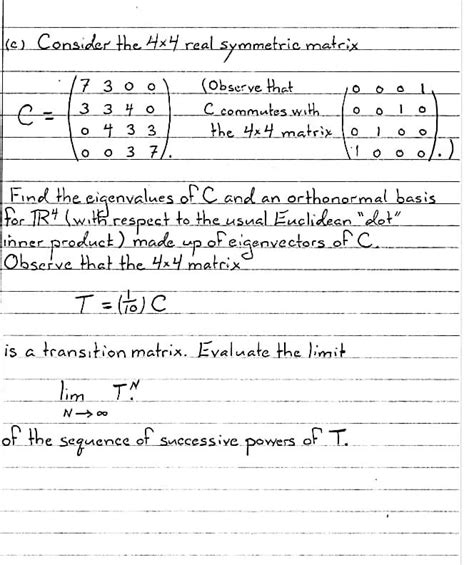 (c) Consider the 4×4 real symmetric matrix
C = (7 3 0 0
3 3 4 0
0 4 3 3
0 0 3 7).
(Observe that
C commutes with
the 4×4 matrix
(0 0 0 1
0 0 1 0
0 1 0 0
1 0 0 0).)
Find the eigenvalues of C and an orthonormal basis
for ℝ⁴ (with respect to the usual Euclidean "dot"
inner product) made up of eigenvectors of C.
Observe that the 4×4 matrix
T = (1/10) C
is a transition matrix. Evaluate the limit
lim T^N.
N→∞
of the sequence of successive powers of T.